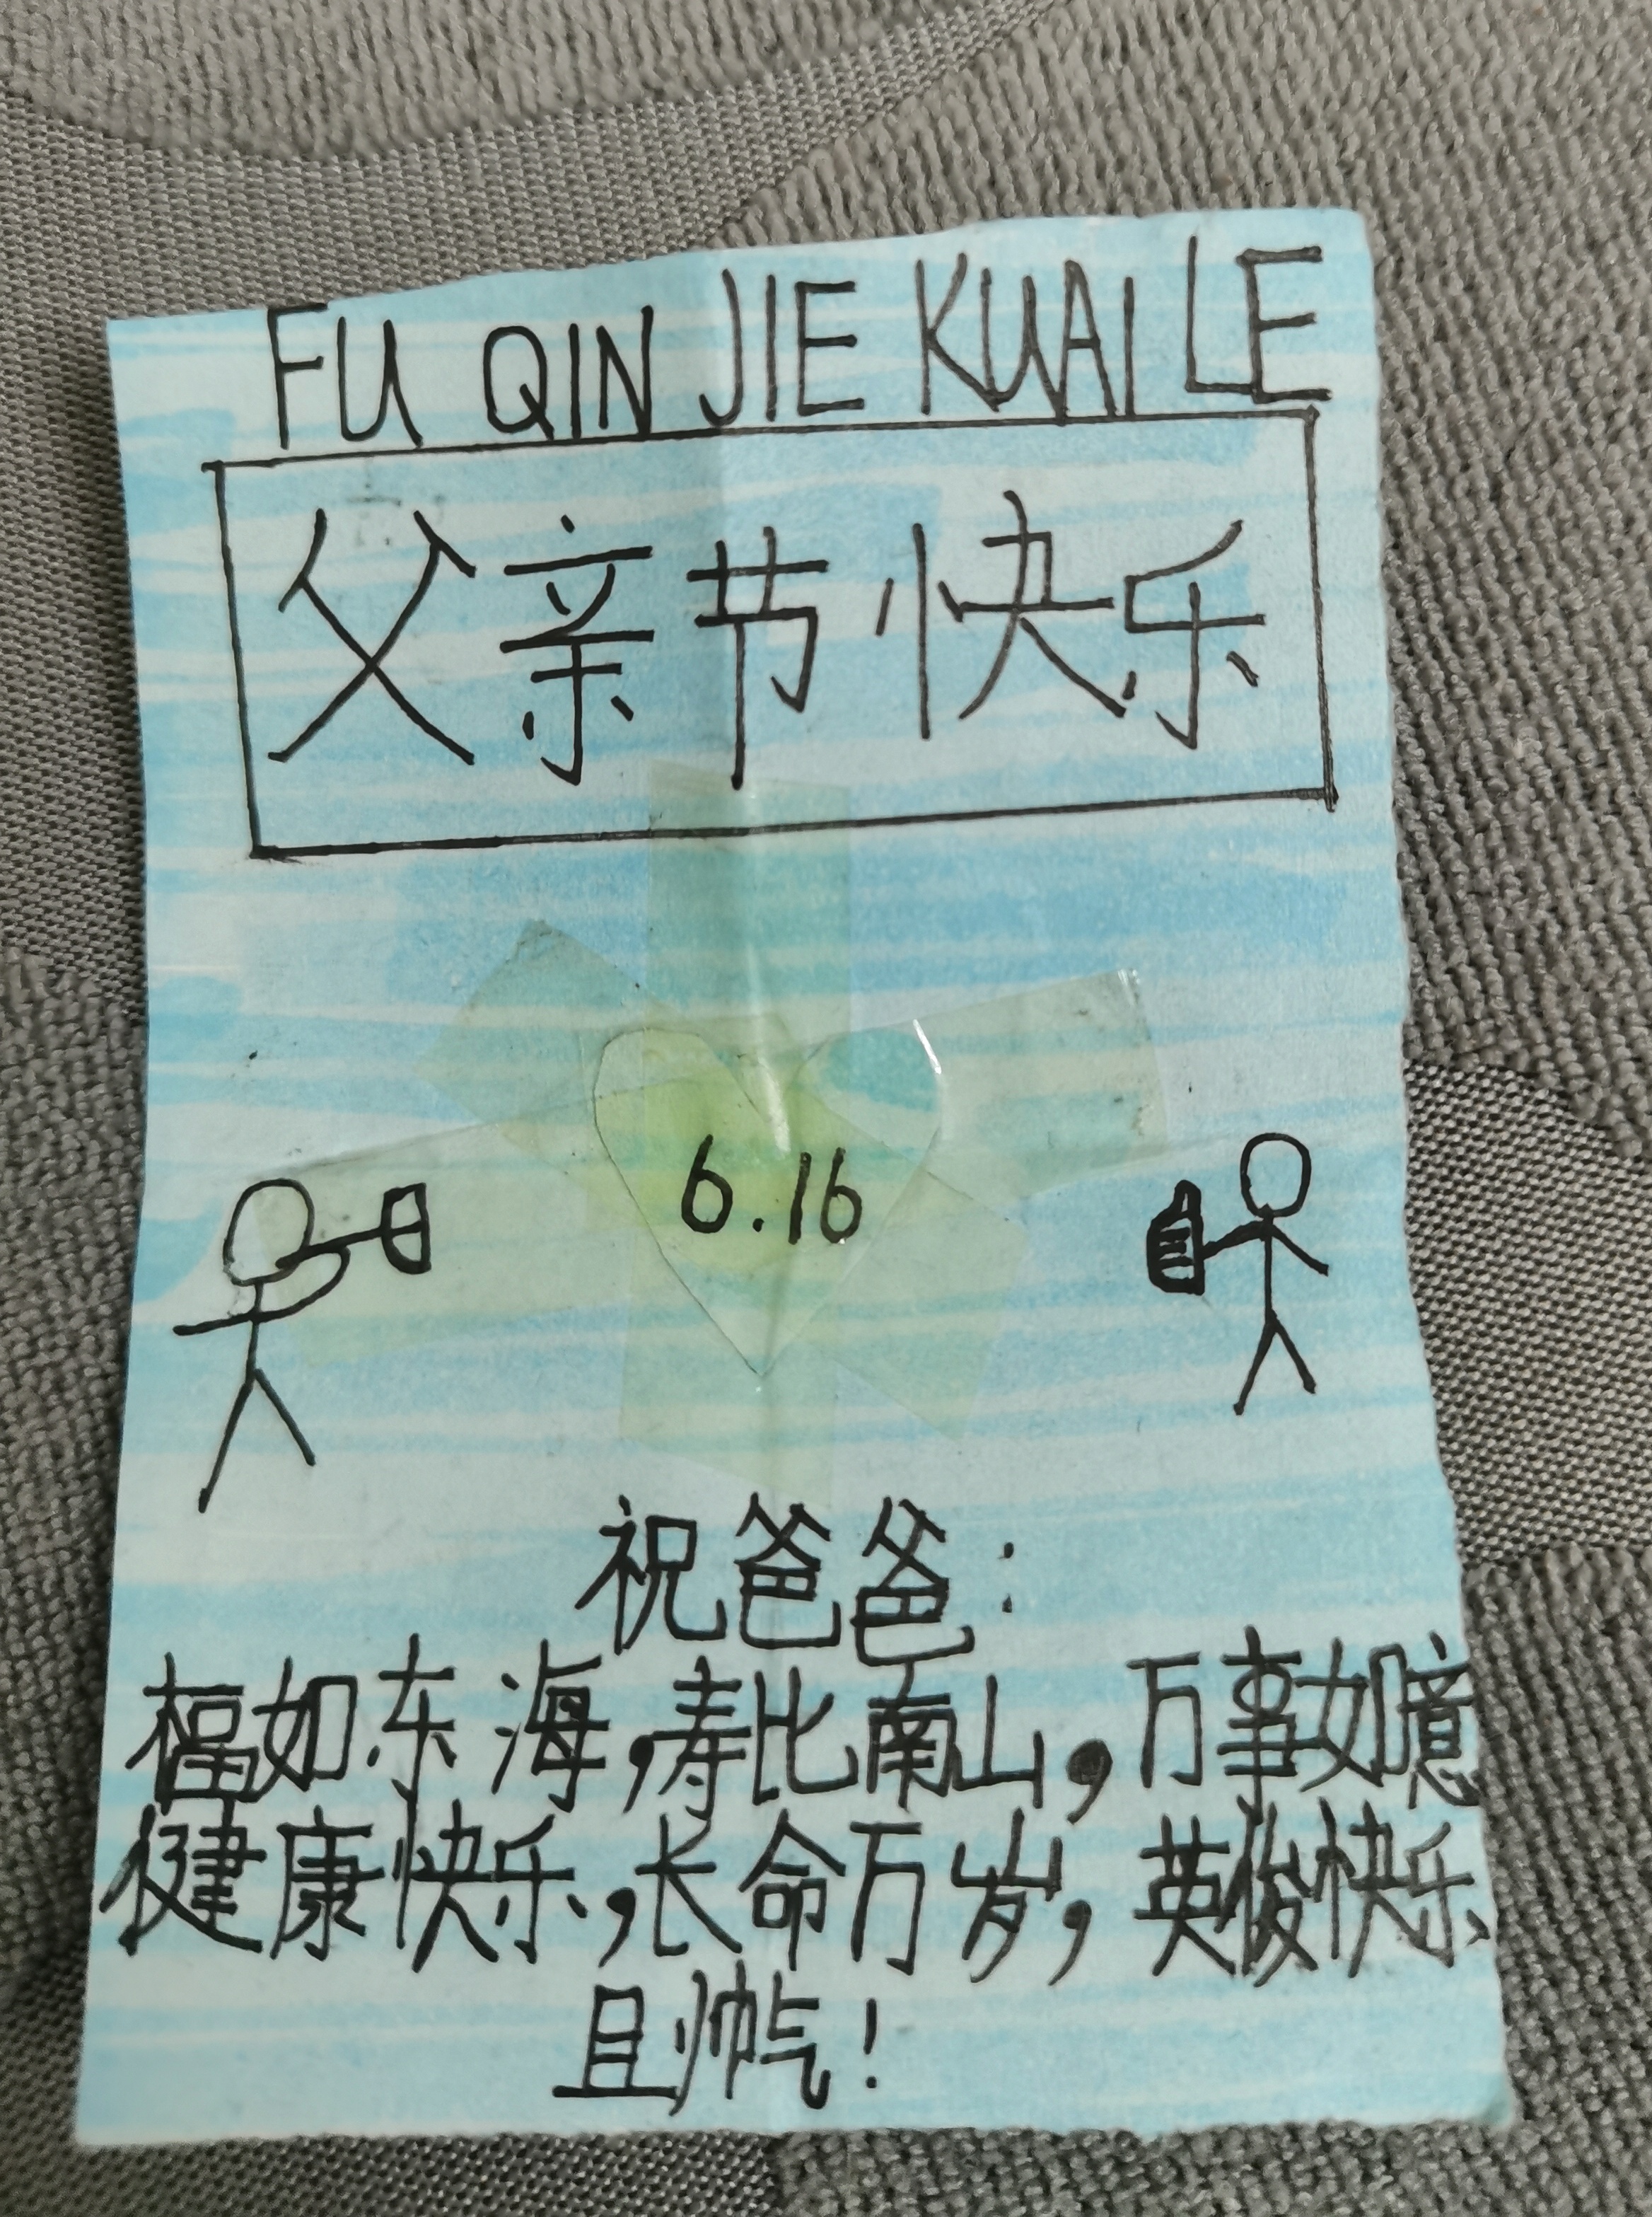 FU QIN JIE KUAI LE
父亲节快乐
6.16
祝爸爸:
福如东海,寿比南山,万事如憶
健康快乐,长命万岁,英俊快乐
且帅气!